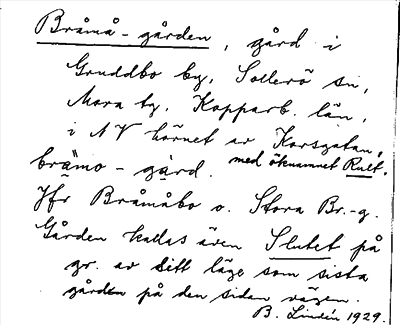 Bråmå-gården, gård i
Gruddbo by, Sollerö sn,
Mora tg, Kopparb. län,
i NV hörnet av Korsgatan,
med öknamnet Rult.
brämo-gård.
Jfr Bråmåbo o. Stora Br.-g.
Gården kallas även Slutet på
gr. av sitt läge som sista
gården på den sidan vägen.
B. Lindén 1929.